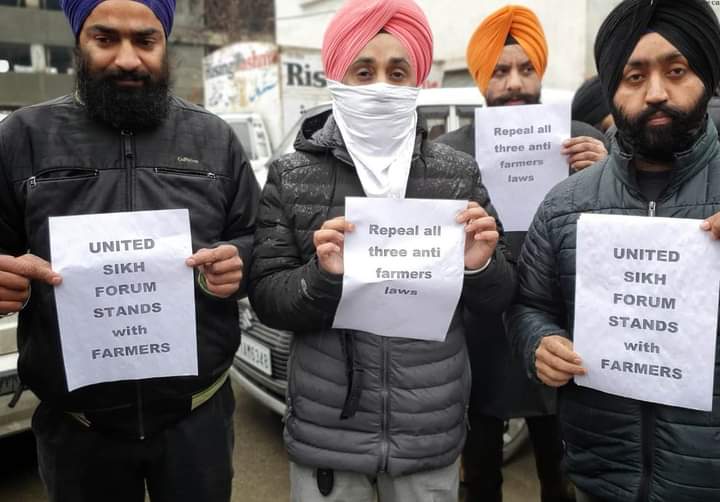 Rising Kashmir
Ris
Repeal all
three anti
farmers
laws
UNITED
SIKH
FORUM
STANDS
with
FARMERS
Repeal all
three anti
farmers
laws
UNITED
SIKH
FORUM
STANDS
with
FARMERS